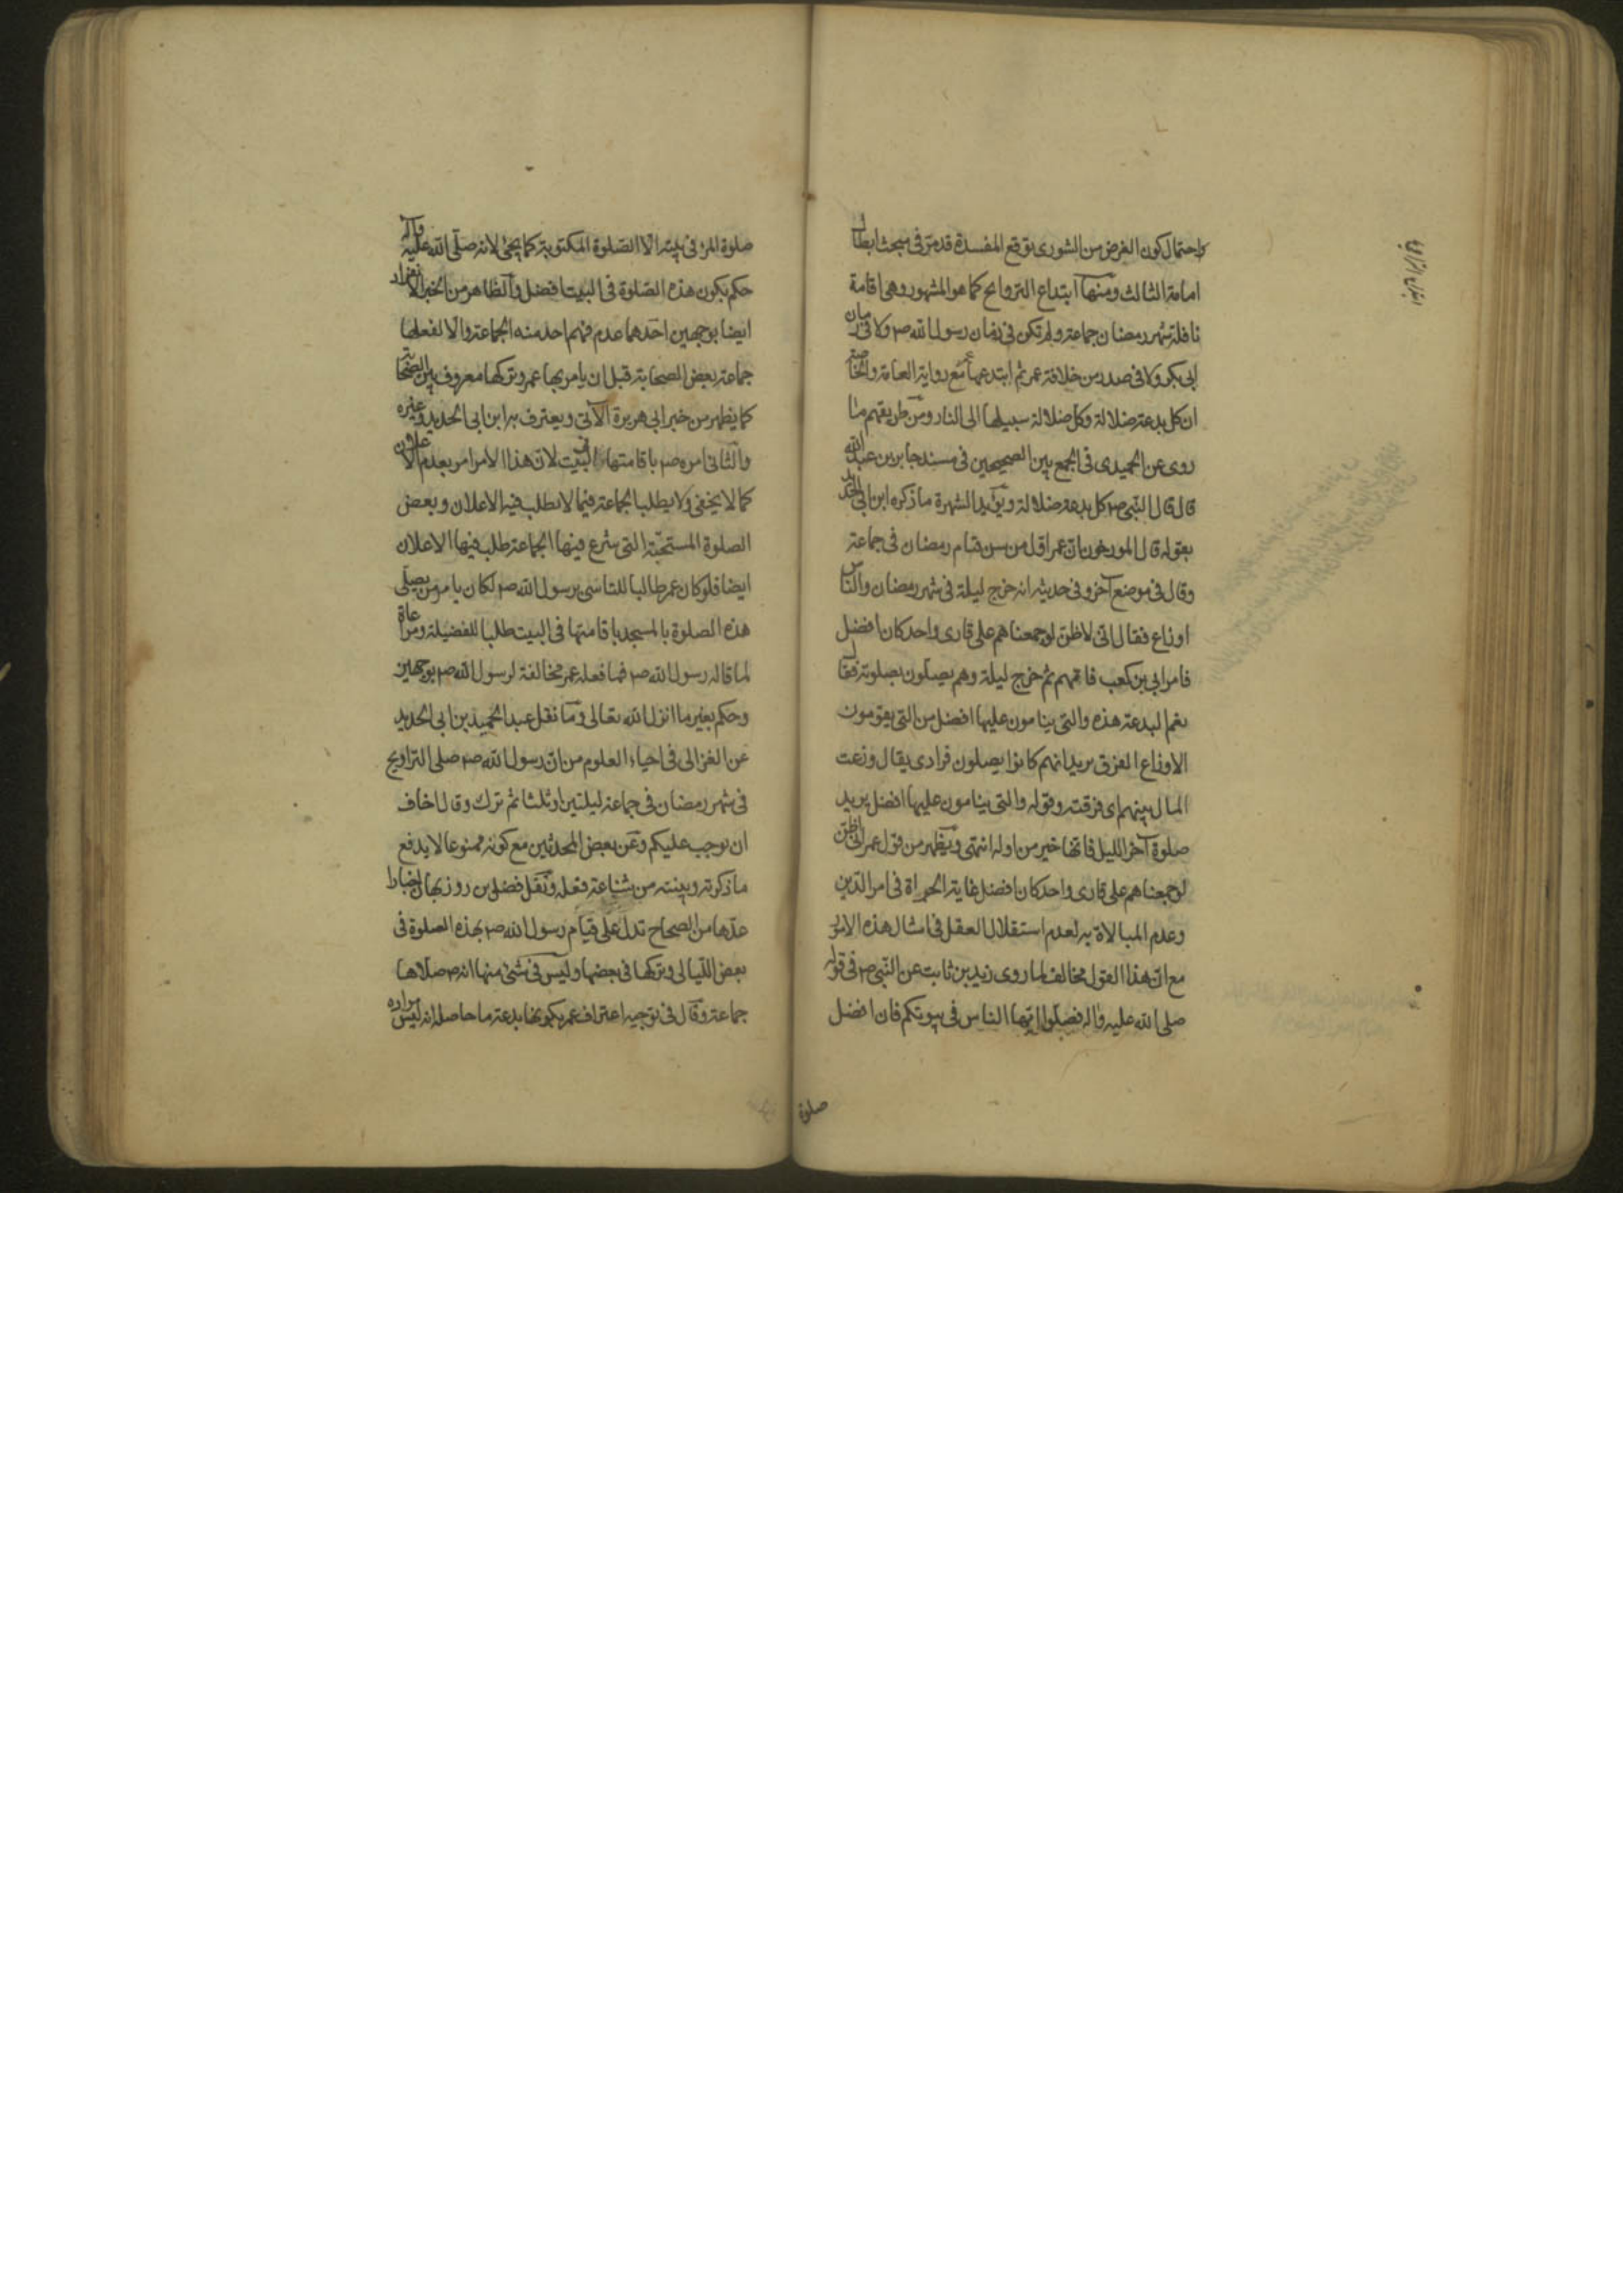 واحتمال كون الغرض من الشورى توقع المفسدة قد مر في مبحث ابطال
امامة الثالث ومنها ابتداع التراويح كما هو المشهور وهى اقامة
نافلة شهر رمضان جماعة ولم تكن في زمان رسول الله ص ولا في زمان
ابى بكر ولا في صدر من خلافة عمر ثم ابتدعها عمر مع رواية العامة والخاصة
ان كل بدعة ضلالة وكل ضلالة سبيلها الى النار ومن طريقهم ما
روى عن الحميدى في الجمع بين الصحيحين في مسند جابر بن عبد الله
قال قال النبي ص كل بدعة ضلالة ويؤيد الشهرة ما ذكره ابن ابى الحديد
بقوله قال المورخون ان عمر اول من سن قيام رمضان في جماعة
وقال في موضع آخر وفى حديثه انه خرج ليلة في شهر رمضان والناس
اوزاع فقال انى لاظن لو جمعناهم على قارى واحد كان افضل
فامر ابى بن كعب فامهم ثم خرج ليلة وهم يصلون بصلوته فقال
نعم البدعة هذه والتى ينامون عليها افضل من التى يقومون
الاوزاع الفرق يريد انهم كانوا يصلون فرادى يقال وزعت
المال بينهم اى فرقته وقوله والتى ينامون عليها افضل يريد
صلوة آخر الليل فانها خير من اوله انتهى ويظهر من قول عمر انى لاظن
لو جمعناهم على قارى واحد كان افضل غاية الجراة في امر الدين
وعدم المبالاة به لعدم استقلال العقل في امثال هذه الامور
مع ان هذا القول مخالف لما روى زيد بن ثابت عن النبي ص في قوله
صلى الله عليه واله فصلوا ايها الناس في بيوتكم فان افضل
صلوة
صلوة المرء في بيته الا الصلوة المكتوبة كما يجئ لانه صلى الله عليه واله
حكم بكون هذه الصلوة في البيت افضل والظاهر من الخبر الانفراد
ايضا بوجهين احدهما عدم فهم احد منه الجماعة والا لفعلها
جماعة بعض الصحابة قبل ان يامر بها عمر وتركها معروف بين الصحابة
كما يظهر من خبر ابى هريرة الآتى ويعترف به ابن ابى الحديد وغيره
والثانى امره ص باقامتها في البيت لان هذا الامر امر بعدم الاعلان
كما لا يخفى ولا يطلب الجماعة فيما لا يطلب فيه الاعلان وبعض
الصلوة المستحبة التى شرع فيها الجماعة طلب فيها الاعلان
ايضا فلو كان عمر طالبا للتاسى برسول الله ص لكان يامر من يصلى
هذه الصلوة بالمسجد باقامتها في البيت طلبا للفضيلة ومراعاة
لما قاله رسول الله ص فما فعله عمر مخالفة لرسول الله ص بوجهين
وحكم بغير ما انزل الله تعالى وما نقل عبد الحميد بن ابى الحديد
عن الغزالى في احياء العلوم من ان رسول الله ص صلى التراويح
في شهر رمضان في جماعة ليلتين او ثلثا ثم ترك وقال اخاف
ان يوجب عليكم وعن بعض المحدثين مع كونه ممنوعا لا يدفع
ما ذكرته وبينته من شناعة فعله ونقل فضل بن روزبهان اخبارا
عدها من الصحاح تدل على قيام رسول الله ص بهذه الصلوة في
بعض الليالى وتركها في بعضها وليس في شئ منها انه ص صلاها
جماعة وقال في توجيه اعتراف عمر بكونها بدعة ما حاصله انه ليس مراده